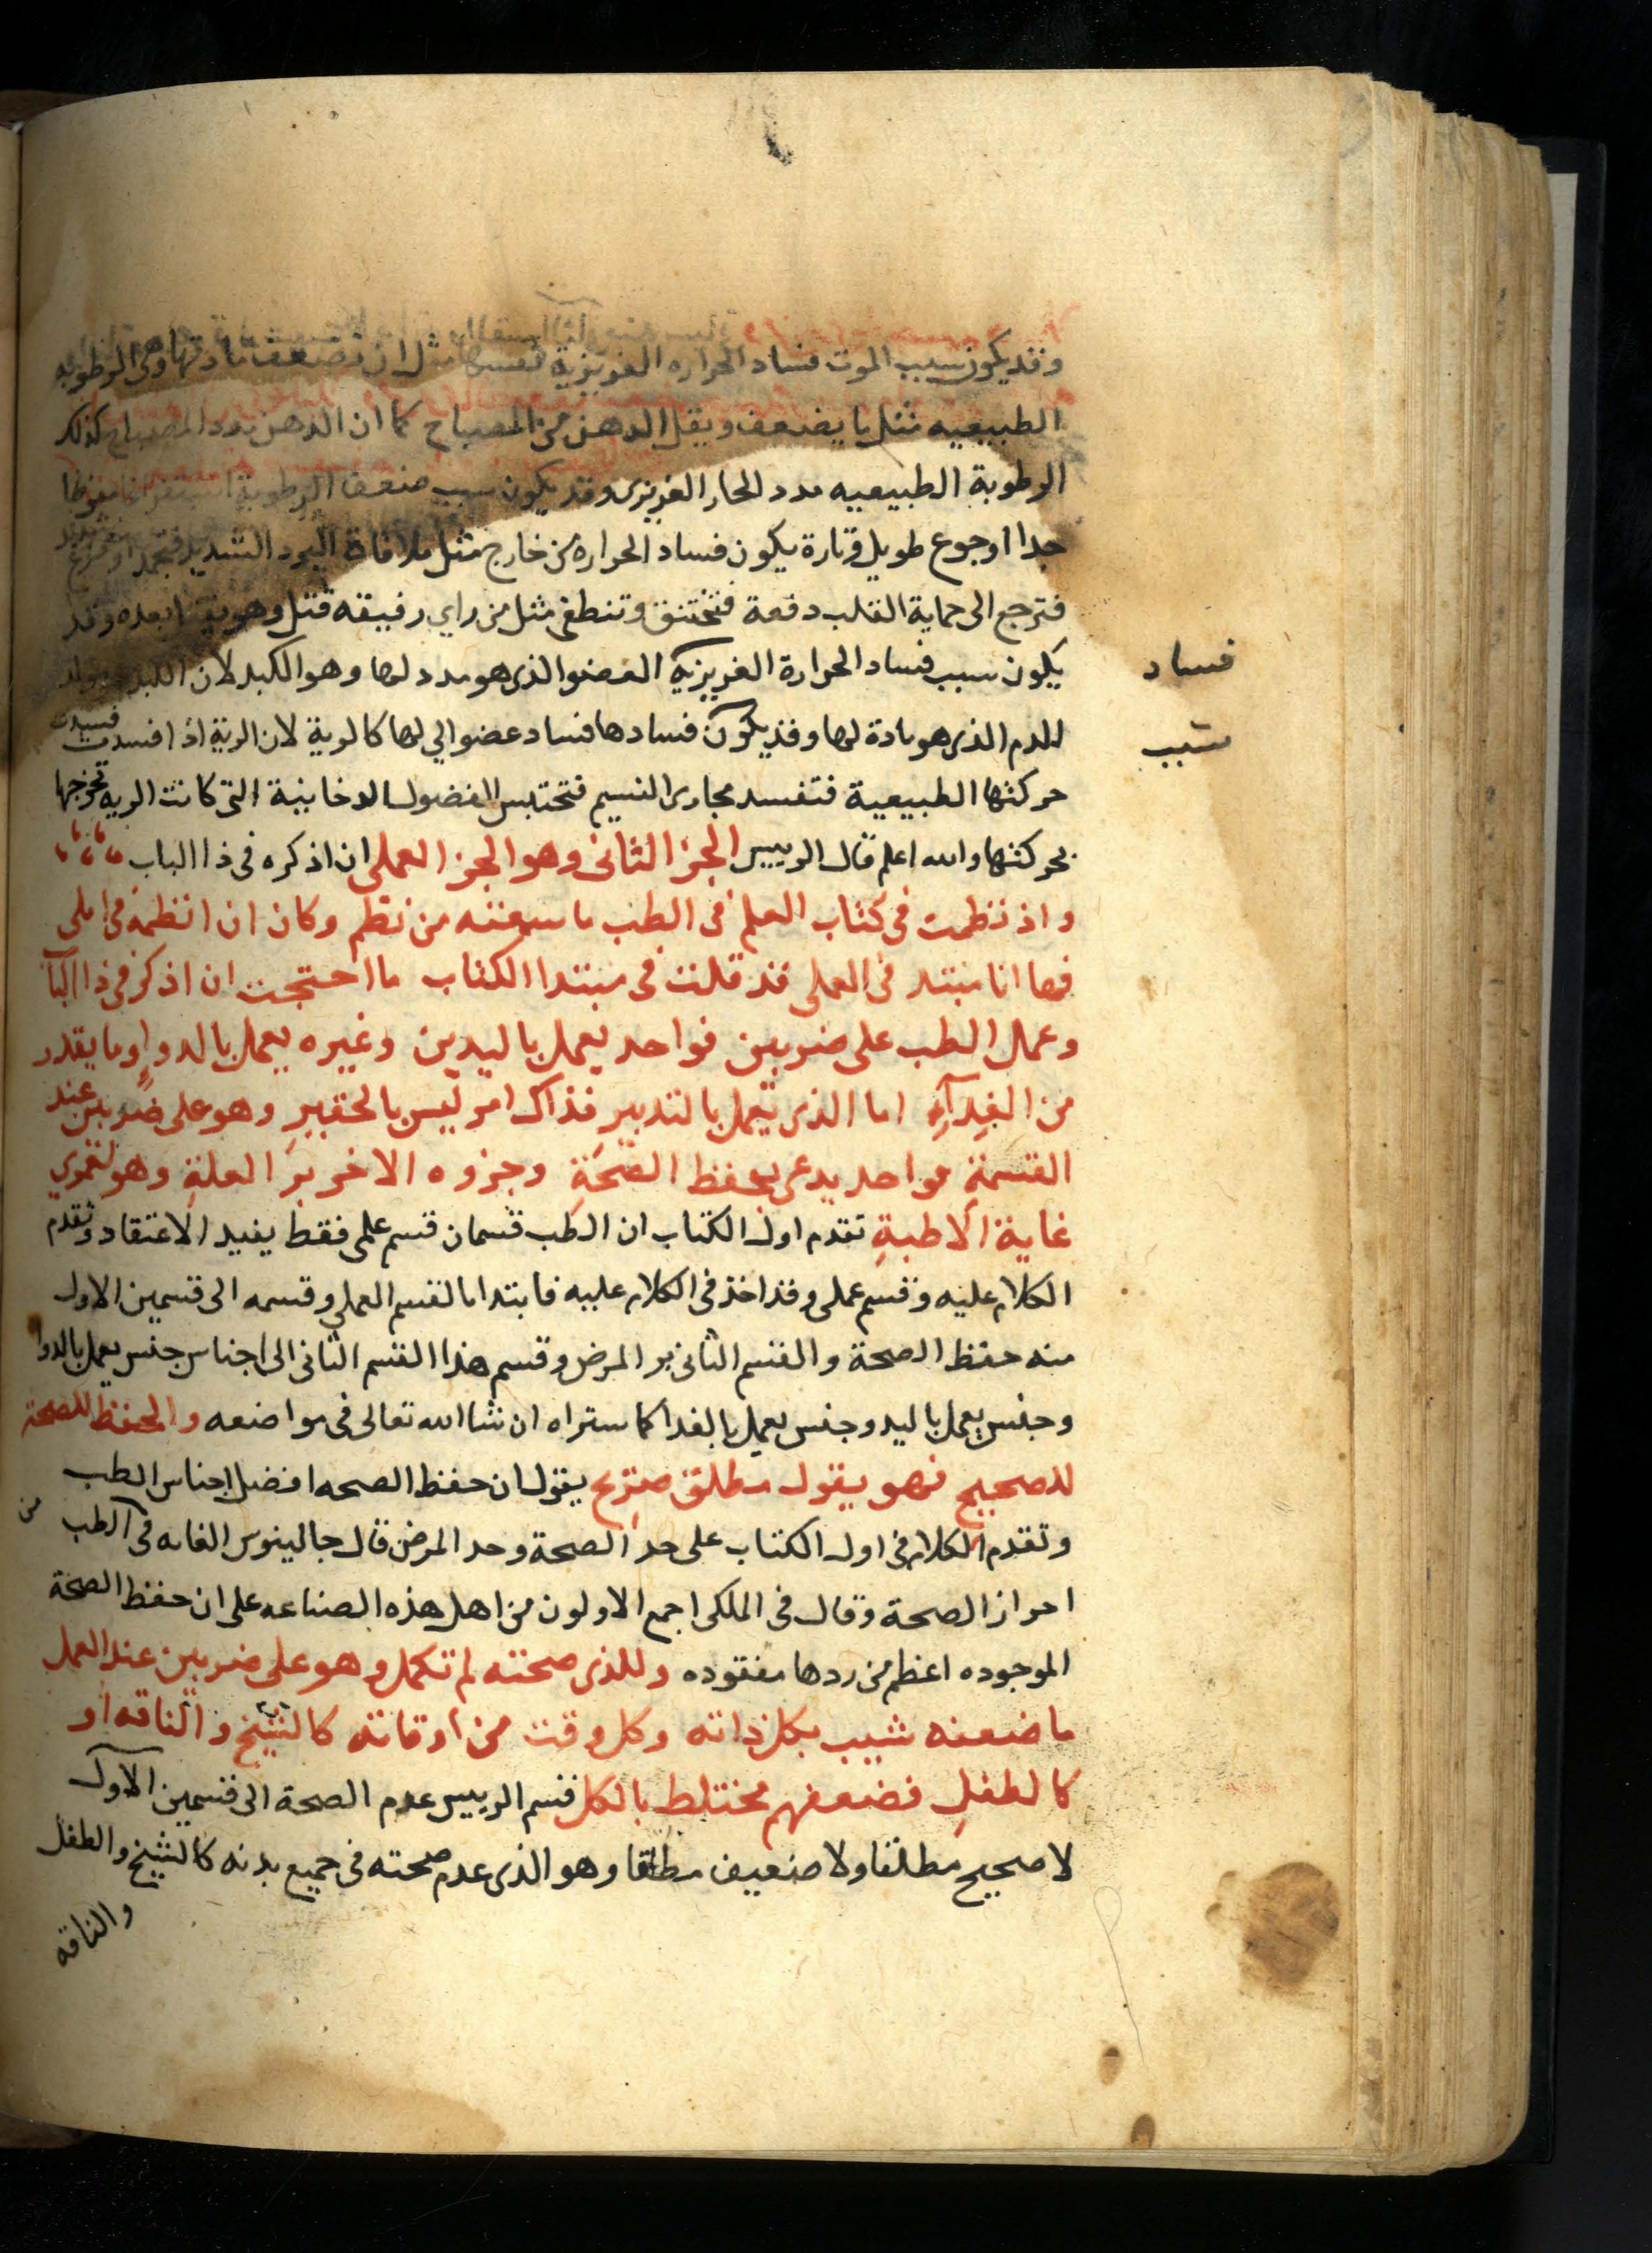 وقد يكون سبب الموت فساد الحراره الغريزية نفسها مثل ان تضعف مادتها وهى الرطوبه
الطبيعيه مثل ما يضعف ويقل الدهن من المصباح كما ان الدهن مدد المصباح كذلك
الرطوبة الطبيعيه مدد الحار الغريزى وقد يكون سبب ضعف الرطوبة
جدا او جوع طويل وتارة يكون فساد الحراره من خارج مثل ملاقاة البرد الشديد فتجمد او فزع
فترجع الى حماية القلب دفعة فتختنق وتنطفى مثل من راي رفيقه قتل وهو بعده وقد
يكون سبب فساد الحرارة الغريزية العضو الذى هو مدد لها وهو الكبد لان الكبد مولد
فساد
للدم الذى هو مادة لها وقد يكون فسادها فساد عضو الي لها كالرية لان الرية اذا فسدت فسدت
سبب
حركتها الطبيعية فتفسد مجارى النسيم فتحتبس الفضول الدخانية التى كانت الريه تخرجها
بحركتها والله اعلم قال الرييس الجز الثانى وهو الجز العملى ان اذكره فى ذا الباب
واذ نظمت فى كتاب العلم فى الطب ما سمعته من نظم وكان ان انظمه فى املى
فها انا مبتد فى العملى قد قلت فى مبتدا الكتاب ما احتجت ان اذكر فى ذا الباب
وعمل الطب على ضربين فواحد يعمل باليدين وغيره يعمل بالدواِ وما يقدر
من الغِدآءِ اما الذى يعمل بالتدبير فذاك امر ليس بالحقيرِ وهو على ضربين عند
القسمةِ فواحد يدعى بحفظ الصحَةِ وجزوه الاخر برَ العلةِ وهو لعمري
غاية الاطبةِ تقدم اول الكتاب ان الطب قسمان قسم علمى فقط يفيد الاعتقاد وتقدم
الكلام عليه وقسم عملى وقد اخذ فى الكلام عليه فابتدا بالقسم العملي وقسمه الى قسمين الاول
منه حفظ الصحة والقسم الثانى بر المرض وقسم هذا القسم الثانى الى اجناس جنس يعمل بالدوا
وجنس يعمل باليد وجنس يعمل بالغدا كما ستراه ان شا الله تعالى فى مواضعه والحفظ للصحة
للصحيح فهو يقول مطلق صريح يقول ان حفظ الصحه افضل اجناس الطب
وتقدم الكلام فى اول الكتاب على حد الصحة وحد المرض قال جالينوس الغايه فى الطب من
احراز الصحة وقال فى الملكى اجمع الاولون من اهل هذه الصناعه على ان حفظ الصحة
الموجوده اعظم من ردها مفقوده وللذى صحته لم تكمل وهو على ضربين عند العمل
ما ضعفه شيب بكل ذاته وكل وقت من اوقاته كالشيخ والناقه او
كالطفلِ فضعفهم مختلط بالكل قسم الرييس عدم الصحة الى قسمين الاول
لا صحيح مطلقا ولا ضعيف مطلقا وهو الذى عدم صحته فى جميع بدنه كالشيخ والطفل
والناقه